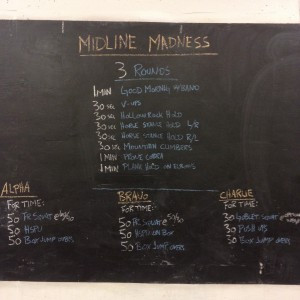 MIDLINE MADNESS
3 ROUNDS
1 MIN GOOD MORNING W/BAND
30 SEC V-UPS
30 SEC HOLLOW ROCK HOLD
30 SEC HORSE STANCE HOLD
30 SEC HORSE STANCE HOLD R/L
30 SEC MOUNTAIN CLIMBERS
1 MIN COBRA
1 MIN PLANK HOLD ON ELBOWS
ALPHA
FOR TIME:
50 SQUAT
50 HSPU
50 BOX JUMP OVERS
BRAVO
FOR TIME:
50 SQUAT
50 HSPU ON BOX
50 BOX JUMP OVERS
CHARLIE
FOR TIME:
30 GOBLET SQUAT
30 PUSH UPS
30 BOX JUMP OVERS